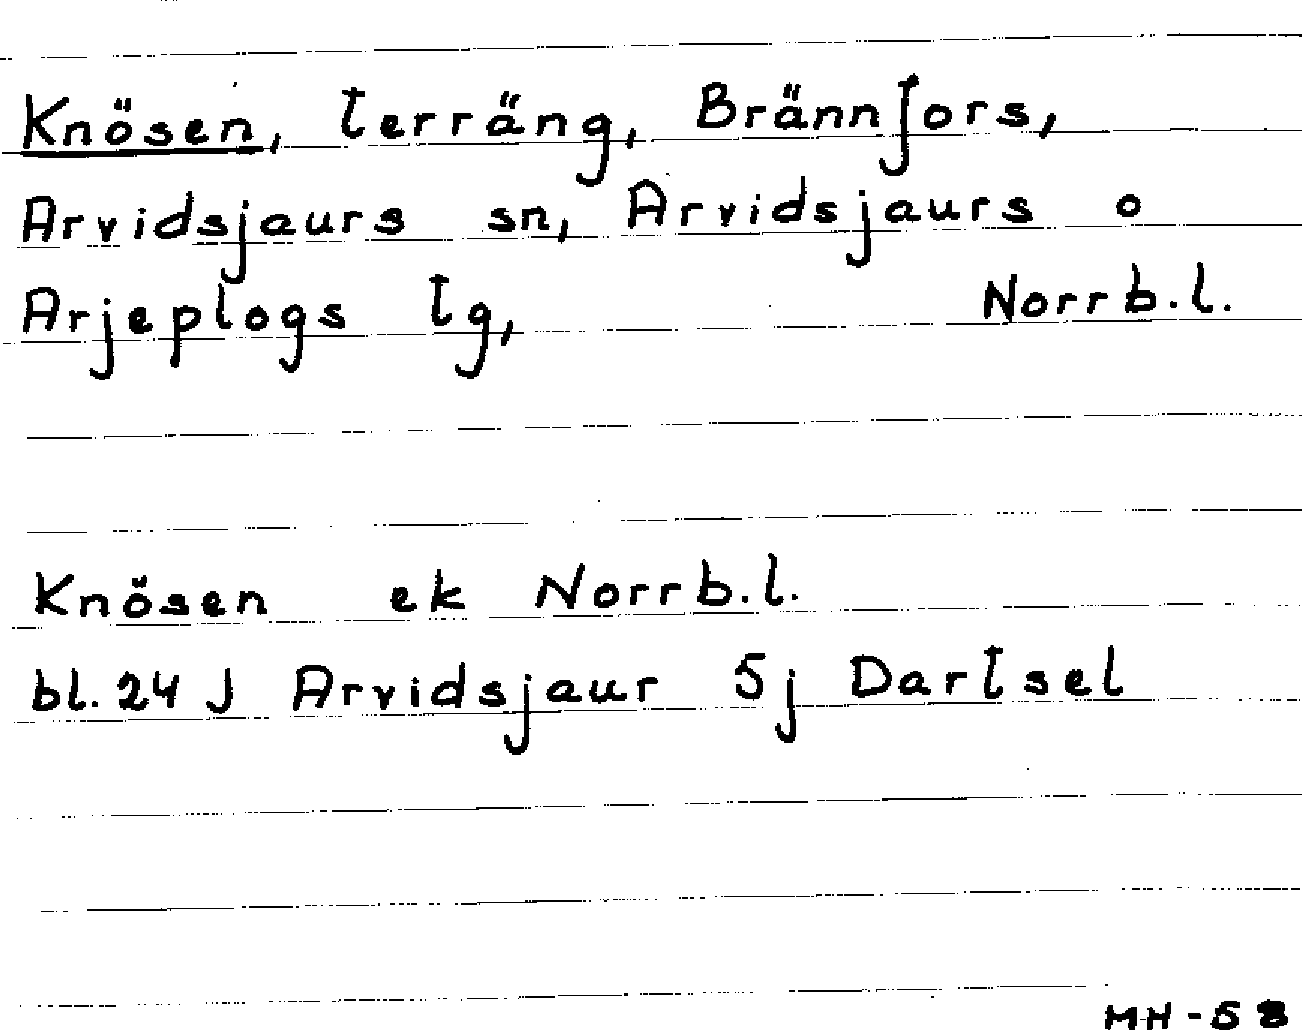 Knösen, terräng, Brännfors,
Arvidsjaurs sn, Arvidsjaurs o
Arjeplogs tg, Norrb.l.
Knösen ek Norrb.l.
bl. 24 J Arvidsjaur 5j Dartsel
MH-58